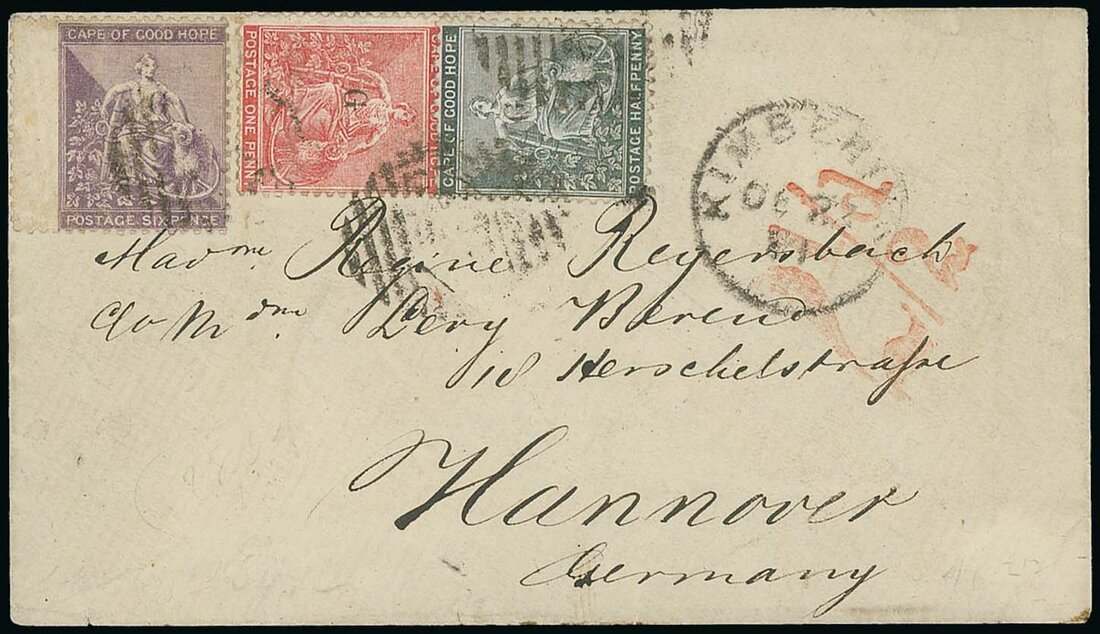 CAPE OF GOOD HOPE
POSTAGE SIXPENCE
POSTAGE ONE PENNY
G
CAPE OF GOOD HOPE
G
POSTAGE HALFPENNY
KIMBERLEY
OC 27
Madme Regine Regersbach
c/o Mdm Levy Berend
18 Herschelstraße
Hannover
Germany